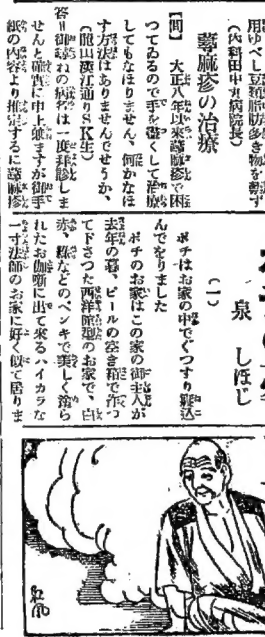 用ゆべし豆類脂肪多き物を禁ず
(内科田中丸病院長)
蕁麻疹の治療
【問】 大正八年以來蕁麻疹で困
つてゐるので手を盡くして治療
してもなほりません、何かなほ
す方法はありませんでせうか、
(龍山漢江通りSK生)
答=御尋ねの病名は一度拝診しま
せんと確實に申上兼ますが御手
紙の内容より推定するに蕁麻疹
泉 しほじ
(一)
ポチはお家の中でぐつすり寢込
んでをりました
ポチのお家はこの家の御主人が
去年の暮、ビールの空き箱で作つ
て下さつた西洋館建のお家で、白
赤、綠などのペンキで美しく塗ら
れたお伽噺に出て來るハイカラな
一寸法師のお家に好く似て居りま